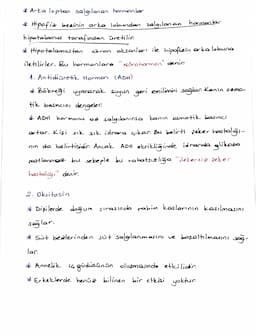 * Arka loptan salgılanan hormonlar
* Hipofiz bezinin arka lobundan salgılanan hormonlar
hipotalamus tarafından üretilir.
* Hipotalamustan akson aksonları ile hipofizin arka lobuna
iletilirler. Bu hormonlara "nörohormon" denir.
1. Antidiüretik Hormon (ADH)
* Böbreği uyararak suyun geri emilimini sağlar. Kanın ozmo-
tik basıncını dengeler.
* ADH hormonu az salgılanırsa kanın ozmotik basıncı
artar. Kişi sık sık idrara çıkar. Bu belirti şeker hastalığı-
nın da belirtisidir. Ancak ADH eksikliğinde idrarda glikoza
rastlanmaz bu sebeple bu rahatsızlığa "Şekersiz şeker
hastalığı" denir.
2. Oksitosin
* Dişilerde doğum sırasında rahim kaslarının kasılmasını
sağlar.
* Süt bezlerinden süt salgılanmasını ve boşaltılmasını sağ-
lar.
* Annelik iç güdüsünün oluşmasında etkilidir.
* Erkeklerde henüz bilinen bir etkisi yoktur.